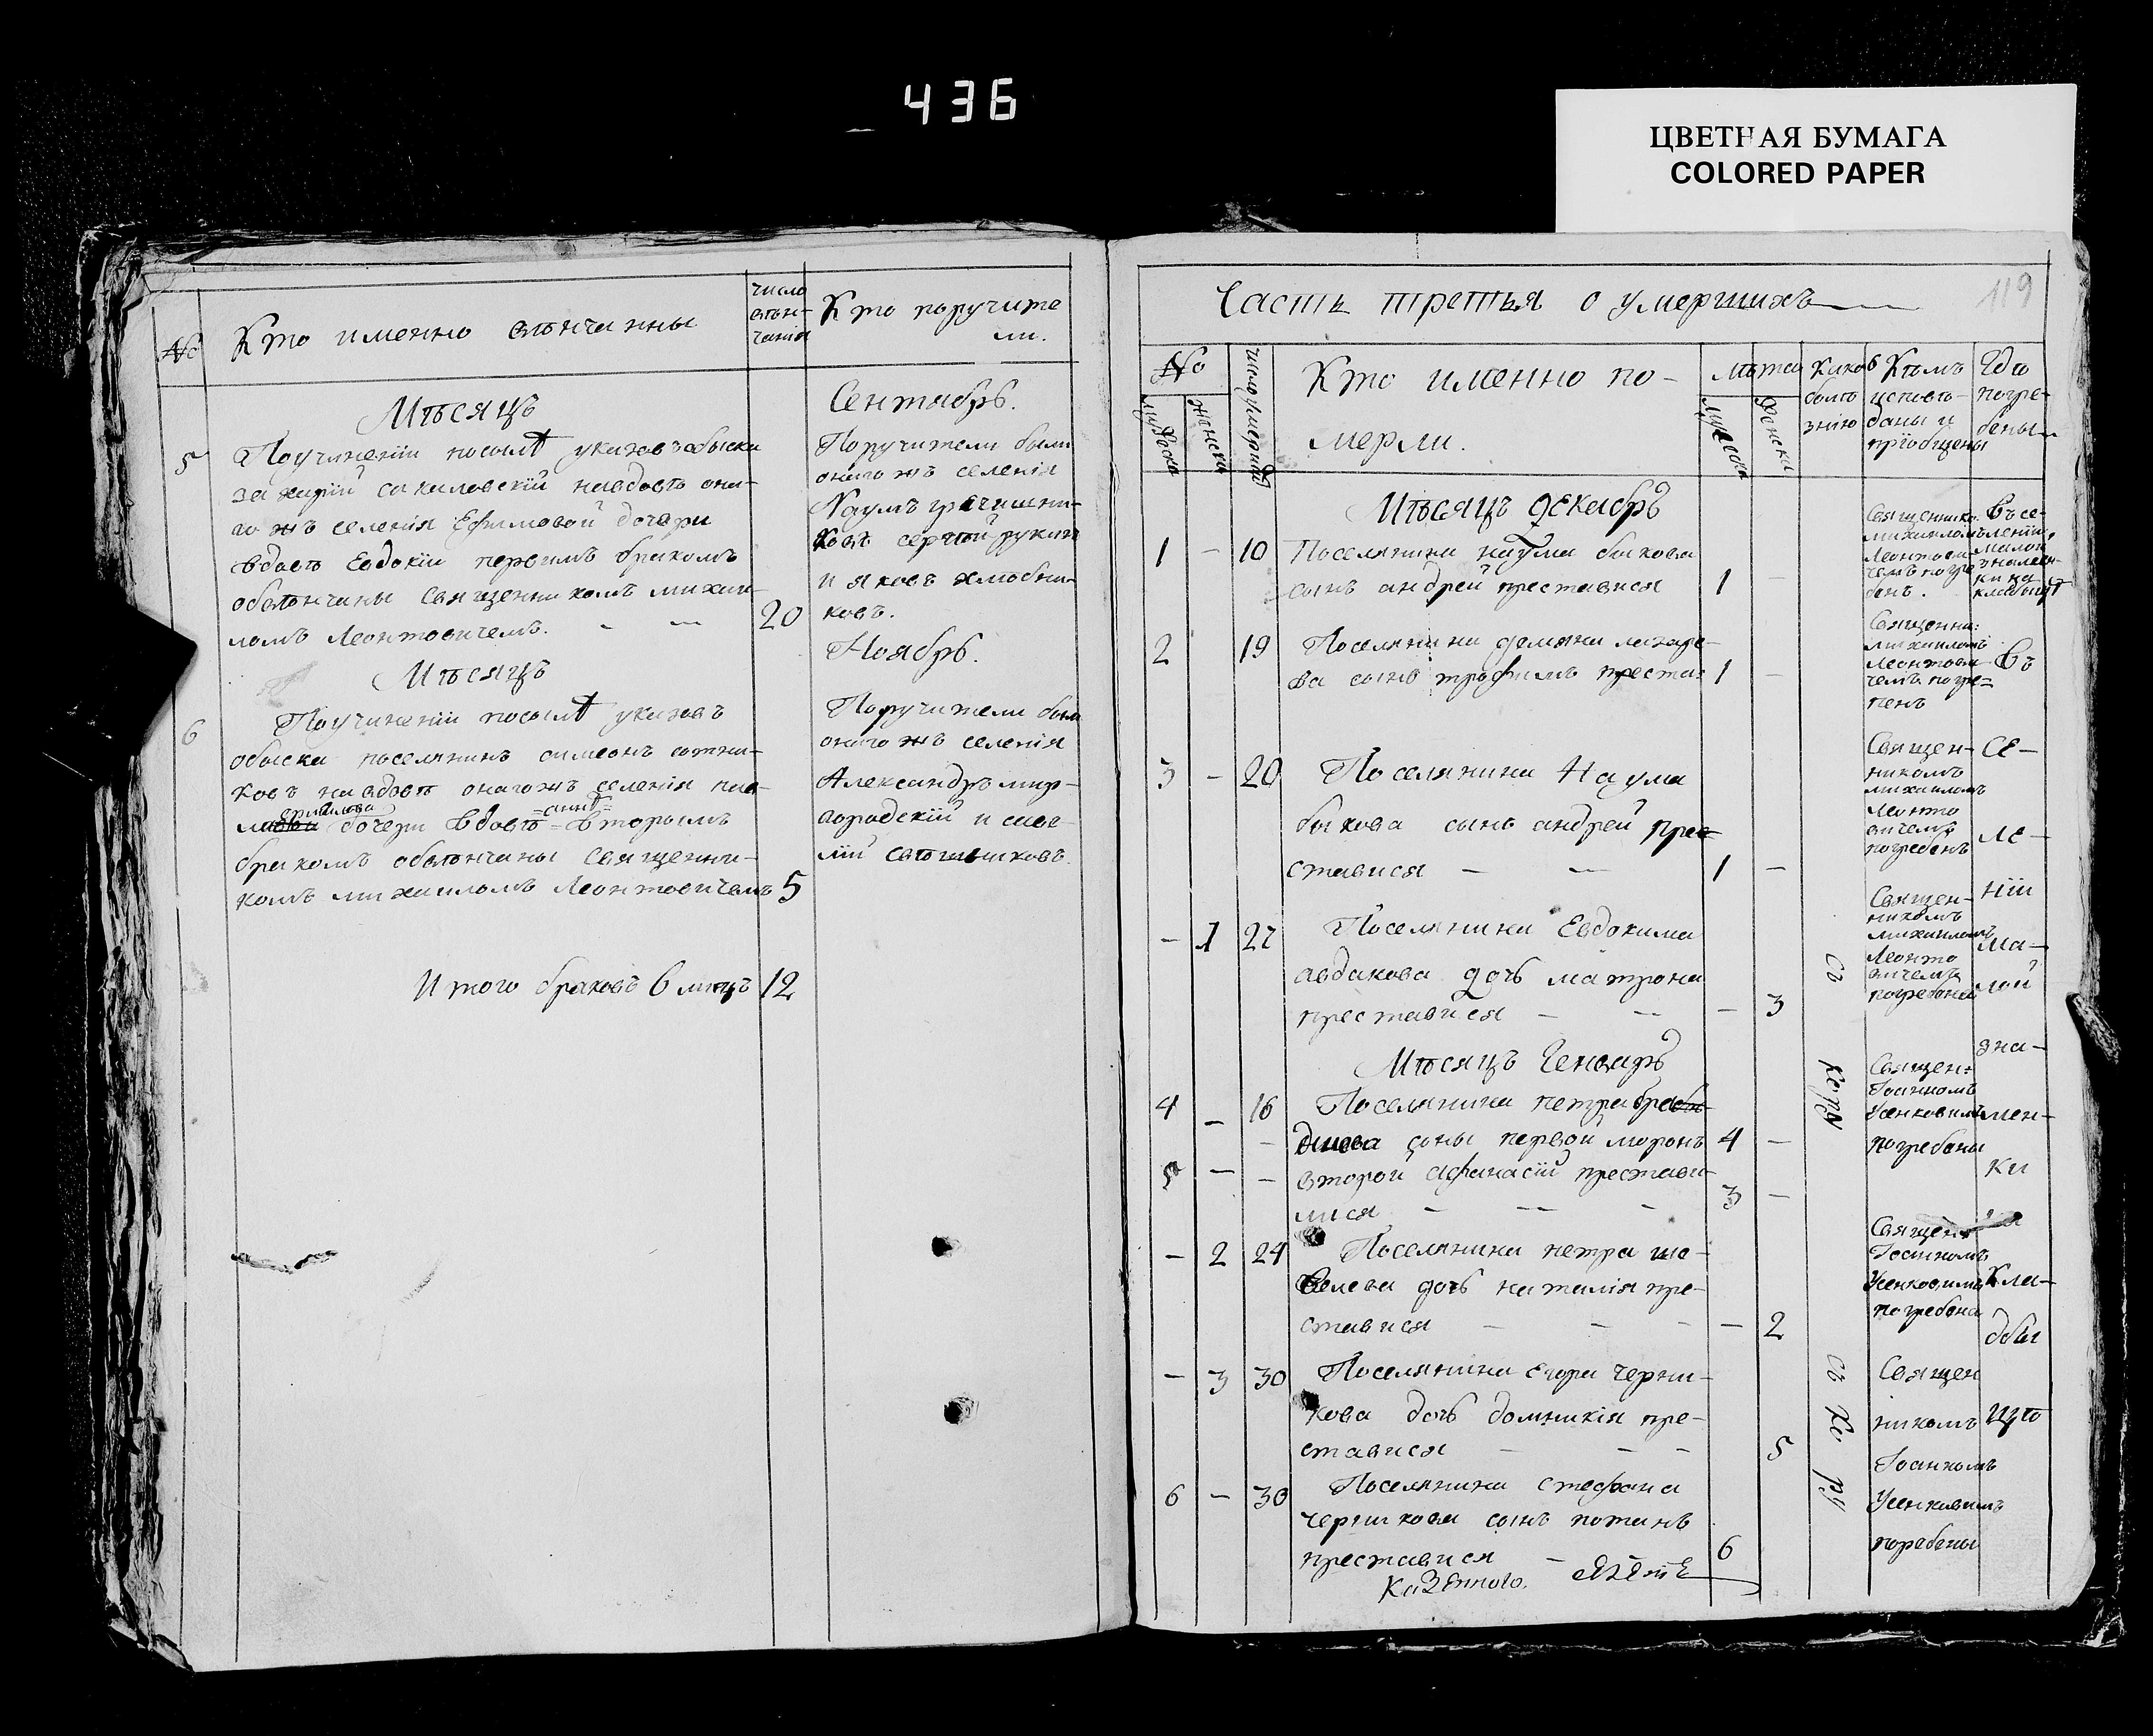 436
ЦВЕТНАЯ БУМАГА
COLORED PAPER
№
Кто именно вѣнчанны
число
вѣн-
чанія
Кто поручите
ли.
Мѣсяцъ
Сентябрь.
5
Поучиненіи посилѣ указовъ обыска
захарій сакиловскій навдовѣ она-
го жъ селенія Ефимовой дочери
вдовѣ Евдокіи первымъ бракомъ
обвѣнчаны Священникомъ михаи-
ломъ Леонтовичемъ.
20
Поручители были
онаго жъ селенія
Наумъ гречишни-
ковъ
и яковъ хлѣбни-
ковъ.
Мѣсяцъ
Ноябрь.
6
Поучиненіи посилѣ указовъ
обыска поселянинъ симеонъ сотни-
ковъ навдовѣ онагожъ селенія
ермилова
аннѣ
дочери вдовѣ вторымъ
бракомъ обвѣнчаны Священни-
комъ михаиломъ Леонтовичемъ
5
Поручители были
онаго жъ селенія
Александръ мир-
городскій и саве-
лій
Итого браковъ 6 лицъ 12
Часть третья о умершихъ
119
№
мужеска
женска
число умершихъ
Кто именно по-
мерли.
лѣта
мужеска
женска
Какою
болѣ
знію
Кѣмъ
исповѣ-
даны и
пріобщены
Где
погре-
бены
Мѣсяцъ Декабрь
1 - 10
Поселянина наума быкова
сынъ андрей преставися
1 -
Священико.
михаиломъ
Леонтови
чемъ погре
бенъ.
Въ се-
леніи
малой
знамен-
ки на
кладбищѣ
2 19
Поселянина демяна лазаре-
ва сынъ трофимъ преста:
1 -
Священни:
михаиломъ
Леонтови
чемъ погре=
пенъ
Въ
3 - 20
Поселянина Наума
быкова сынъ андрей пре-
ставися
1 -
Священ-
никомъ
михаиломъ
Леонто
вичемъ
погребенъ
се-
ле-
- 1 27
Поселянина Евдокима
авдакова дочь матрона
преставися
- 3
Священ-
никомъ
михаиломъ
Леонто
вичемъ
погребена
ніи
ма-
лой
съ
Мѣсяцъ Генварь
4 - 16
Поселянина петра
сыны первой миронъ
4 -
5 - -
второй афанасій престави-
лися
3 -
кору
Священ:
Іоанномъ
Усенковимъ
погребены
зна-
мен-
ки
- 2 24
Поселянина петра ше-
велева дочь наталія пре-
ставися
- 2
Священ
Іоанномъ
Усенковимъ
погребена
на
кла-
дби
- 3 30
Поселянина Егора черни-
кова дочь домникія пре-
ставися
5
съ
ко
ру
Священ
никомъ
Іоанномъ
Усенковимъ
погребены
щѣ
6 - 30
Поселянина стефана
черникова сынъ потапъ
преставися
6
Казенного.